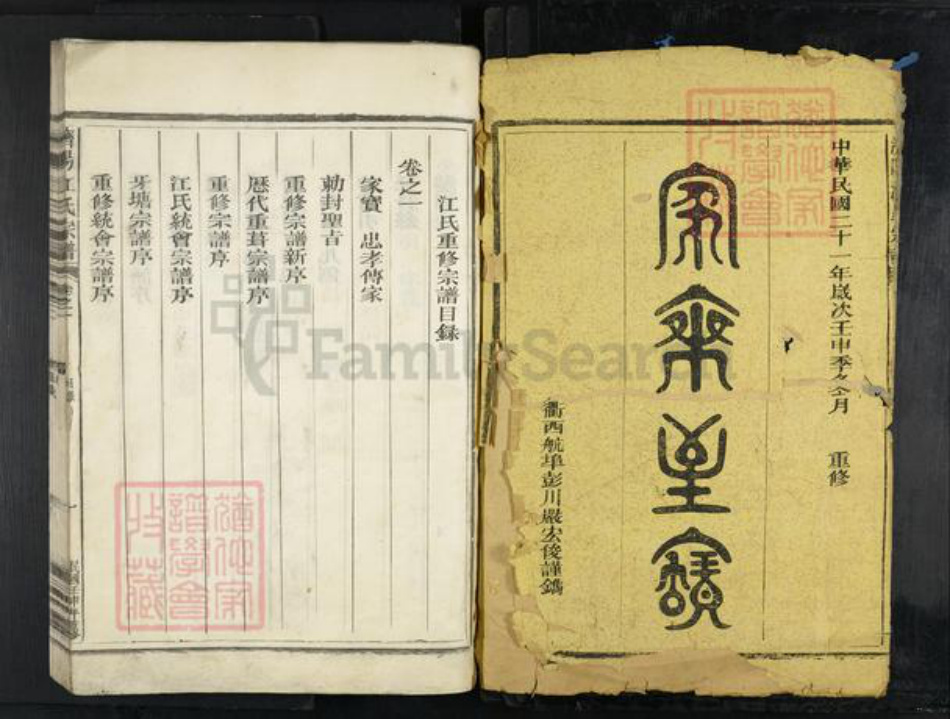 中華民國二十一年歲次壬申季冬月 重修
家乘至寶
衢西航埠彭川嚴宏俊謹鐫
江氏重修宗譜目録
卷之一
家寶 忠孝傳家
勅封聖旨
重修宗譜新序
歴代重葺宗譜序
重修宗譜序
江氏統會宗譜序
牙塘宗譜序
重修統會宗譜序
濟陽江氏宗譜 卷之一
FamilySearch